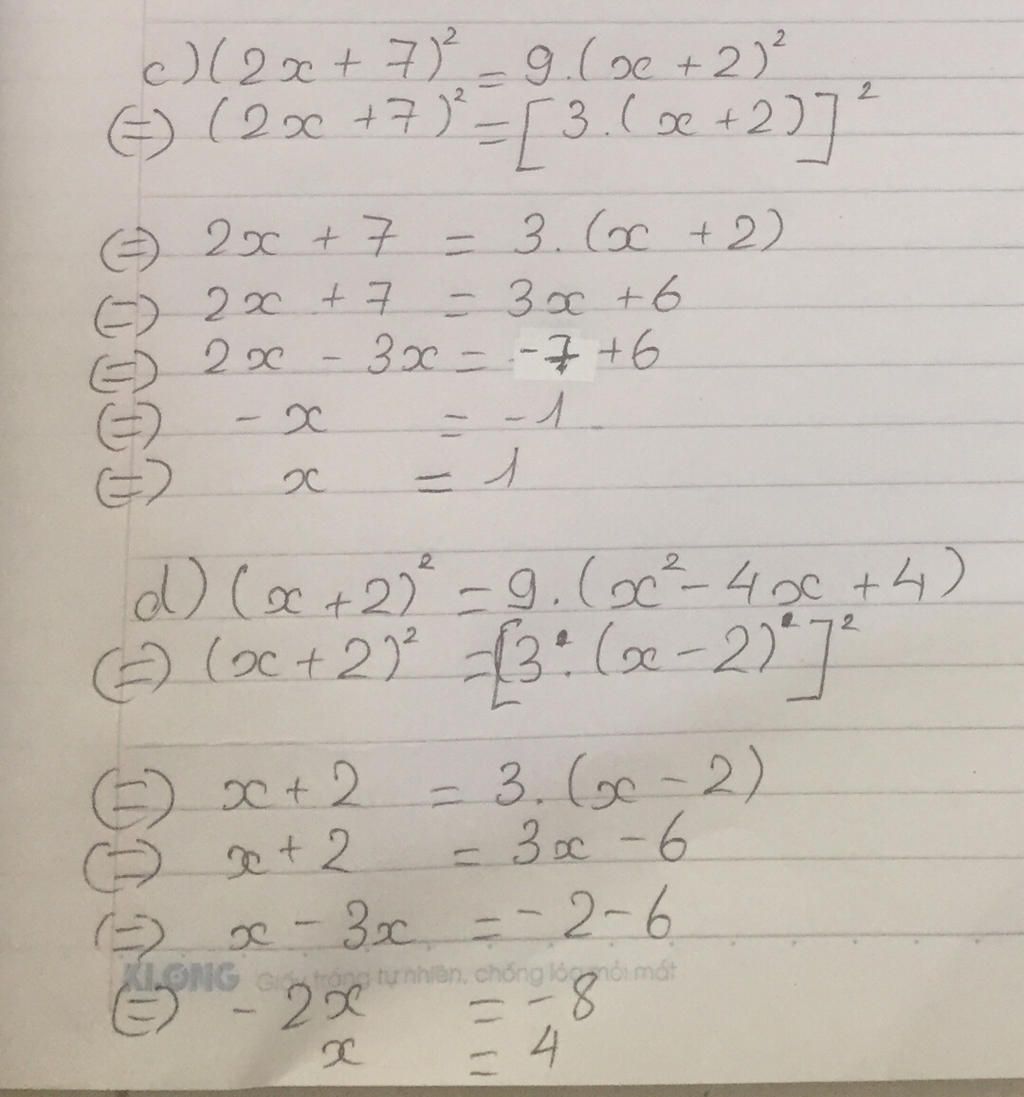 c) (2x + 7)² = 9.(x + 2)²
(=) (2x + 7)² = [3.(x + 2)]²
(=) 2x + 7 = 3.(x + 2)
(=) 2x + 7 = 3x + 6
(=) 2x - 3x = -7 + 6
(=) -x = -1
(=) x = 1
d) (x + 2)² = 9.(x² - 4x + 4)
(=) (x + 2)² = [3.(x - 2)]²
(=) x + 2 = 3.(x - 2)
(=) x + 2 = 3x - 6
(=) x - 3x = -2 - 6
KLONG Giấy trắng tự nhiên, chống lóa mỏi mắt
(=) -2x = -8
x = 4